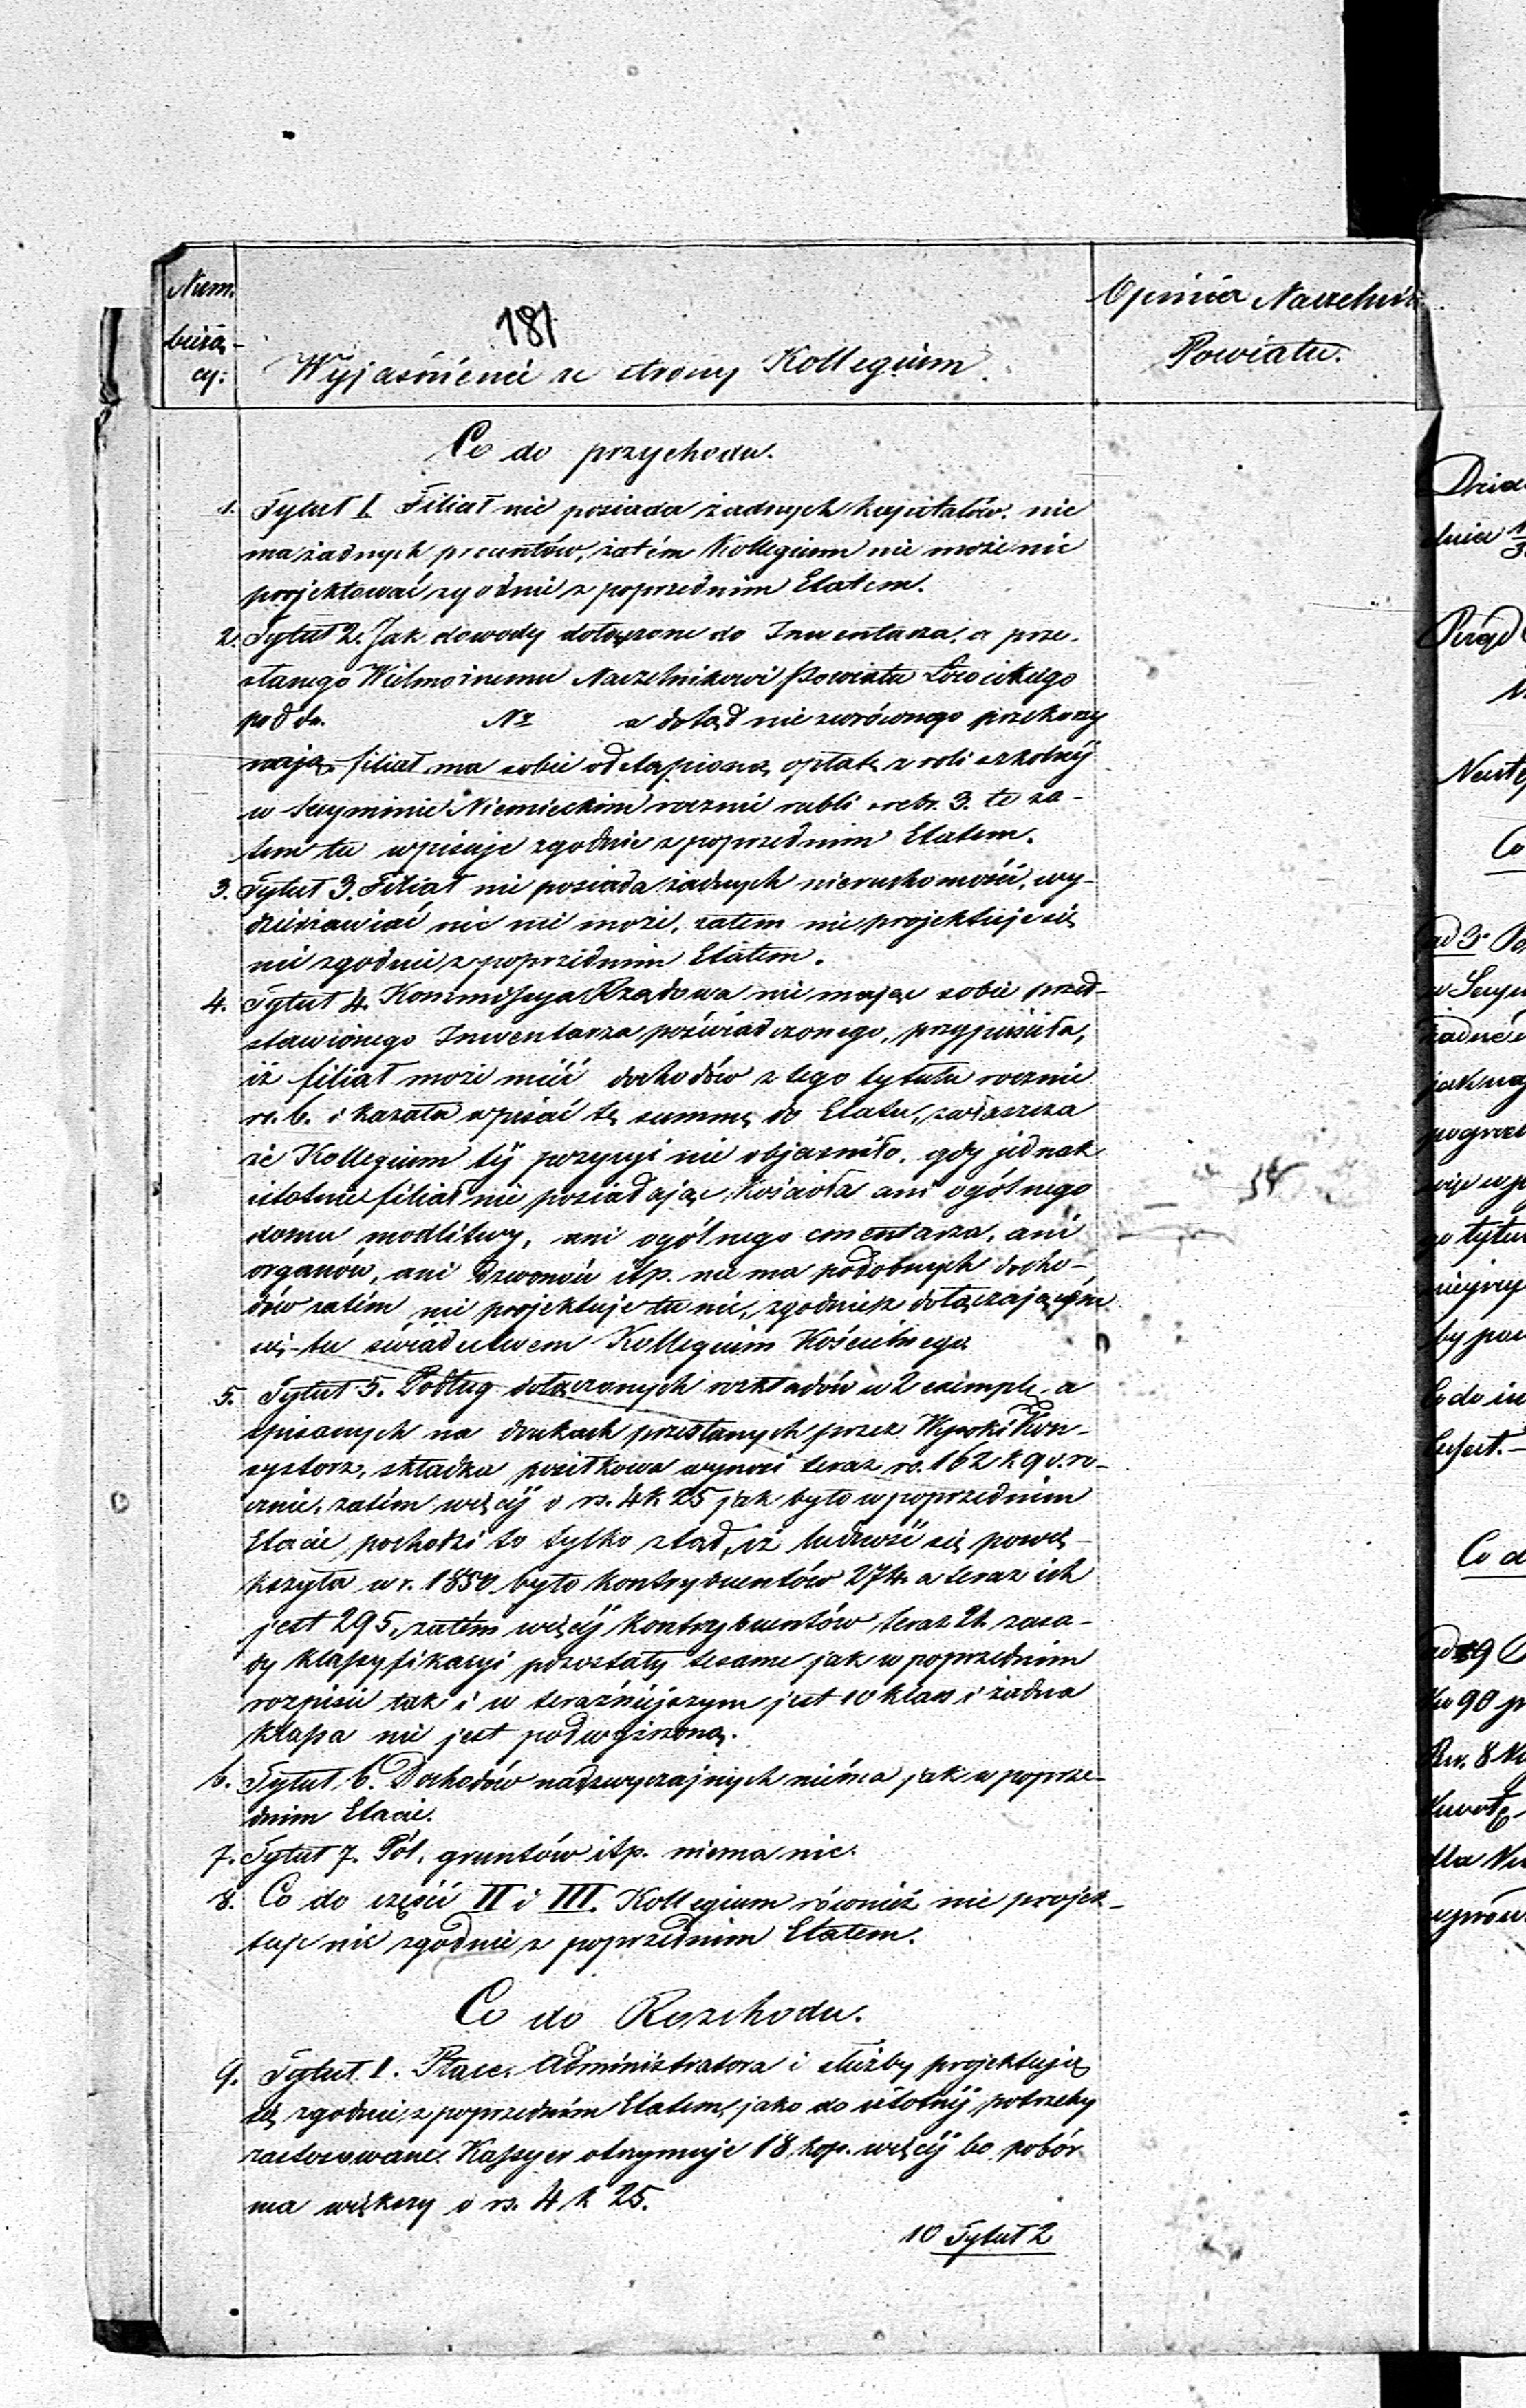 Num.
bieżą-
cy:
181
Wyjaśnienie ze strony Kollegium.
Opinia Naczelni
Powiatu.
Co do przychodu.
1. Tytuł 1. Filiał nie posiada żadnych kapitałów, nie
ma żadnych procentów, zatém Kollegium nie może nic
projektować zgodnie z poprzednim Etatem.
2. Tytuł 2. Jak dowody dołączone do Inwentarza, a prze-
słanego Wielmożnemu Naczelnikowi Powiatu Łowickiego
pod dn. Nr a dotąd nie zwróconego przekony
wają, filiał ma sobie odstąpioną opłatę z roli szkolnéj
w Secyminie Niemieckim rocznie rubli srebr. 3. to za-
tem tu wpisuje zgodnie z poprzednim Etatem.
3. Tytuł 3. Filiał nie posiada żadnych nieruchomości, wy-
dzierżawiać nic nie może, zatem nie projektuje się
nic zgodnie z poprzednim Etatem.
4. Tytuł 4. Kommissya Rządowa nie mając sobie przed-
stawionego Inwentarza poświadczonego, przypuściła,
iż filiał może mieć dochodów z tego tytułu rocznie
rs. 6. i kazała wpisać tę summę do Etatu, zwłaszcza
że Kollegium téj pozycyi nie objaśniło, gdy jednak
istotnie filiał nie posiadając Kościoła ani ogólnego
domu modlitwy, ani ogólnego cmentarza, ani
organów, ani dzwonów itp. nie ma podobnych docho-
dów zatém nie projektuje tu nic, zgodnie z dołączającém
się tu świadectwem Kollegium Kościelnego.
5. Tytuł 5. Podług dołączonych rozkładów w 2 exempl. a
spisanych na drukach przesłanych przez Wysoki Kon-
systorz, składka posiłkowa wynosi teraz rs. 162 k 90. ro-
cznie, zatém więcéj o rs. 4 k. 25 jak było w poprzednim
Etacie, pochodzi to tylko ztąd, iż ludność się powię-
kszyła w r. 1850 było kontrybuentów 274. a teraz ich
jest 295, zatém więcéj kontrybuentów teraz 21. zasa-
dy klassyfikacyi pozostały tesame jak w poprzednim
rozpisie tak i w teraźniejszym jest 10 klass i żadna
klassa nie jest podwyższoną.
6. Tytuł 6. Dochodów nadzwyczajnych niéma jak w poprze-
dnim Etacie.
7. Tytuł 7. Pól, gruntów itp. niema nic.
8. Co do części II i III. Kollegium również nie projek-
tuje nic zgodnie z poprzednim Etatem.
Co do Rozchodu.
9. Tytuł 1. Płace. Administratora i służby projektują
się zgodnie z poprzednim Etatem, jako do istotnéj potrzeby
zastosowane. Kassyer otrzymuje 18 kop. więcéj bo pobór
ma większy o rs. 4 k 25.
10 Tytuł 2